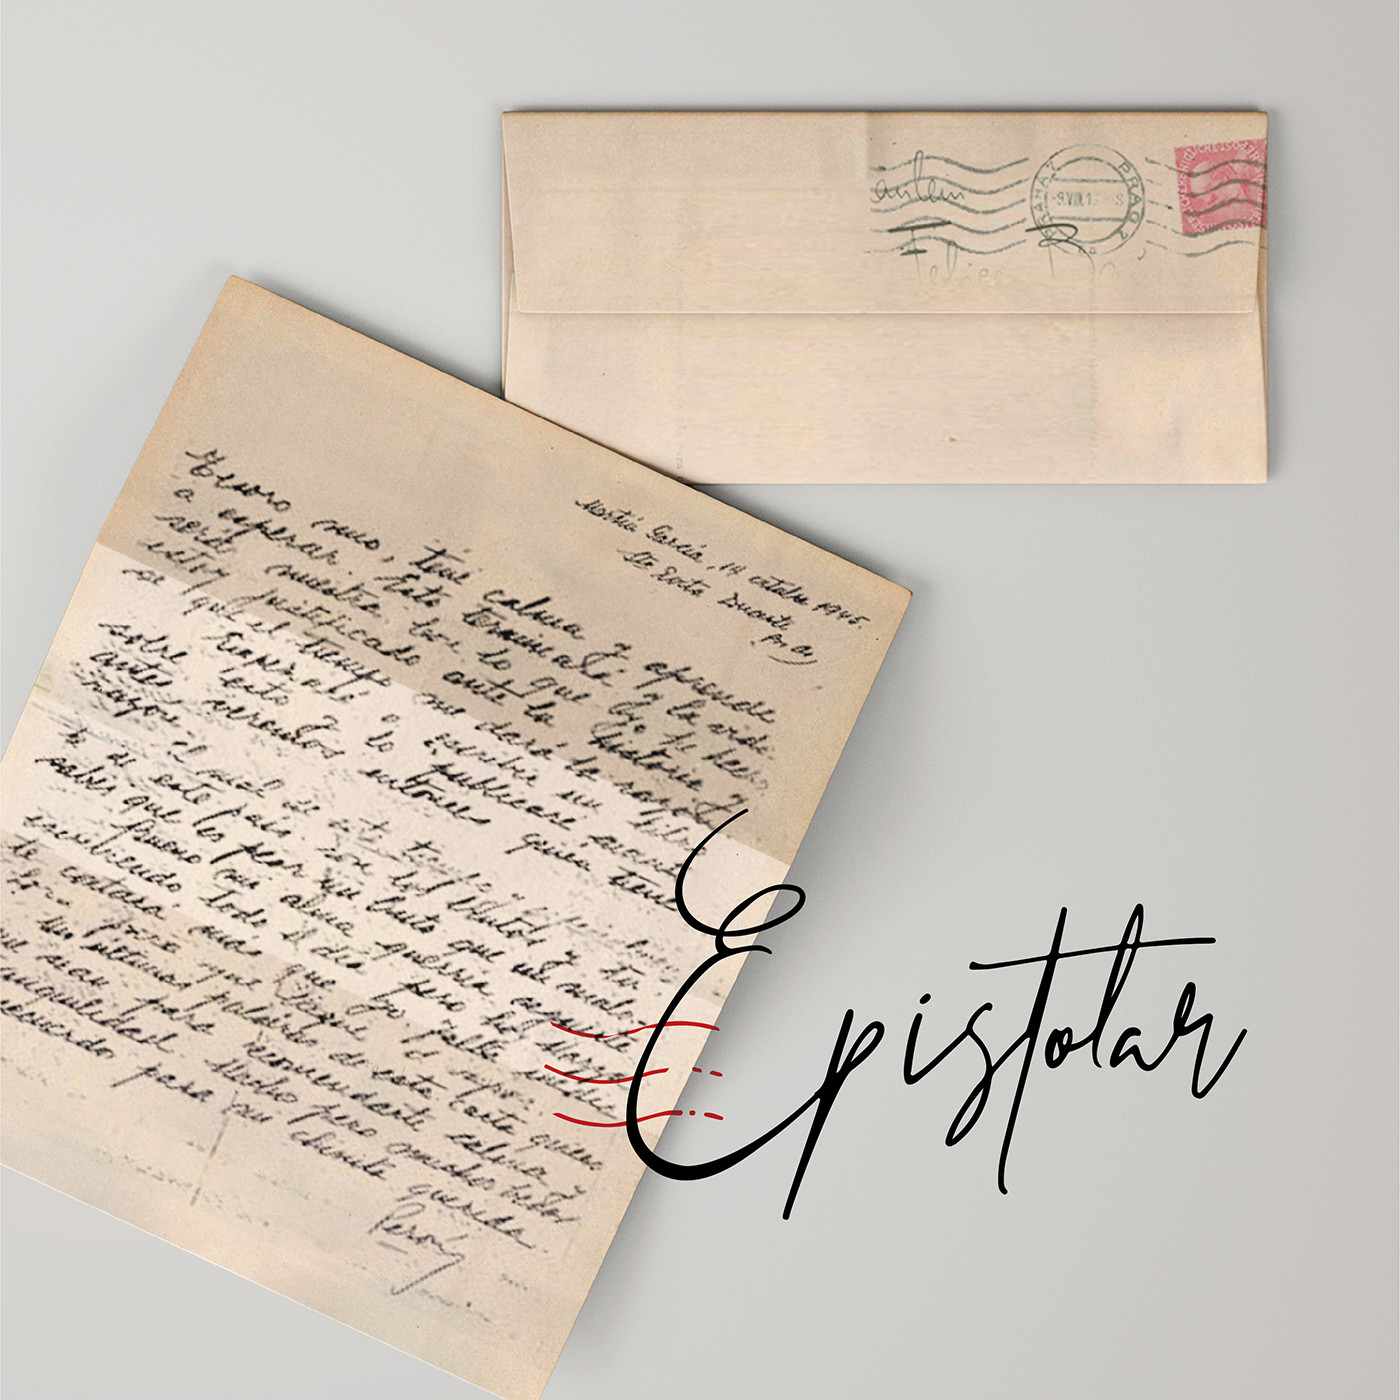 PRAHA 7
PRAG 7
9.VIII.1
8
Martín García, 14 octubre 1945.
Sta Evita Duarte
Bs As
Tesoro mío, tené calma y aprende
a esperar. Esto terminará y la vida
será nuestra. Con lo que yo he hecho
estoy justificado ante la historia y
sé que el tiempo me dará la razón.
Empezaré a escribir un libro
sobre esto y lo publicaré cuanto
antes, veremos entonces quien tiene
razón.
El mal de este tiempo y
de este país son los brutos y tu
sabes que es peor un bruto que un malo.
Bueno mi alma querría seguirte
escribiendo todo el día pero hoy Mazza
te contará más que yo. Falta media
Mis últimas palabras de esta carta quiero
que sean para recomendarte calma y
tranquilidad. Muchos pero muchos besos
recuerdos para mi chinita querida.
Perón
Epistolar